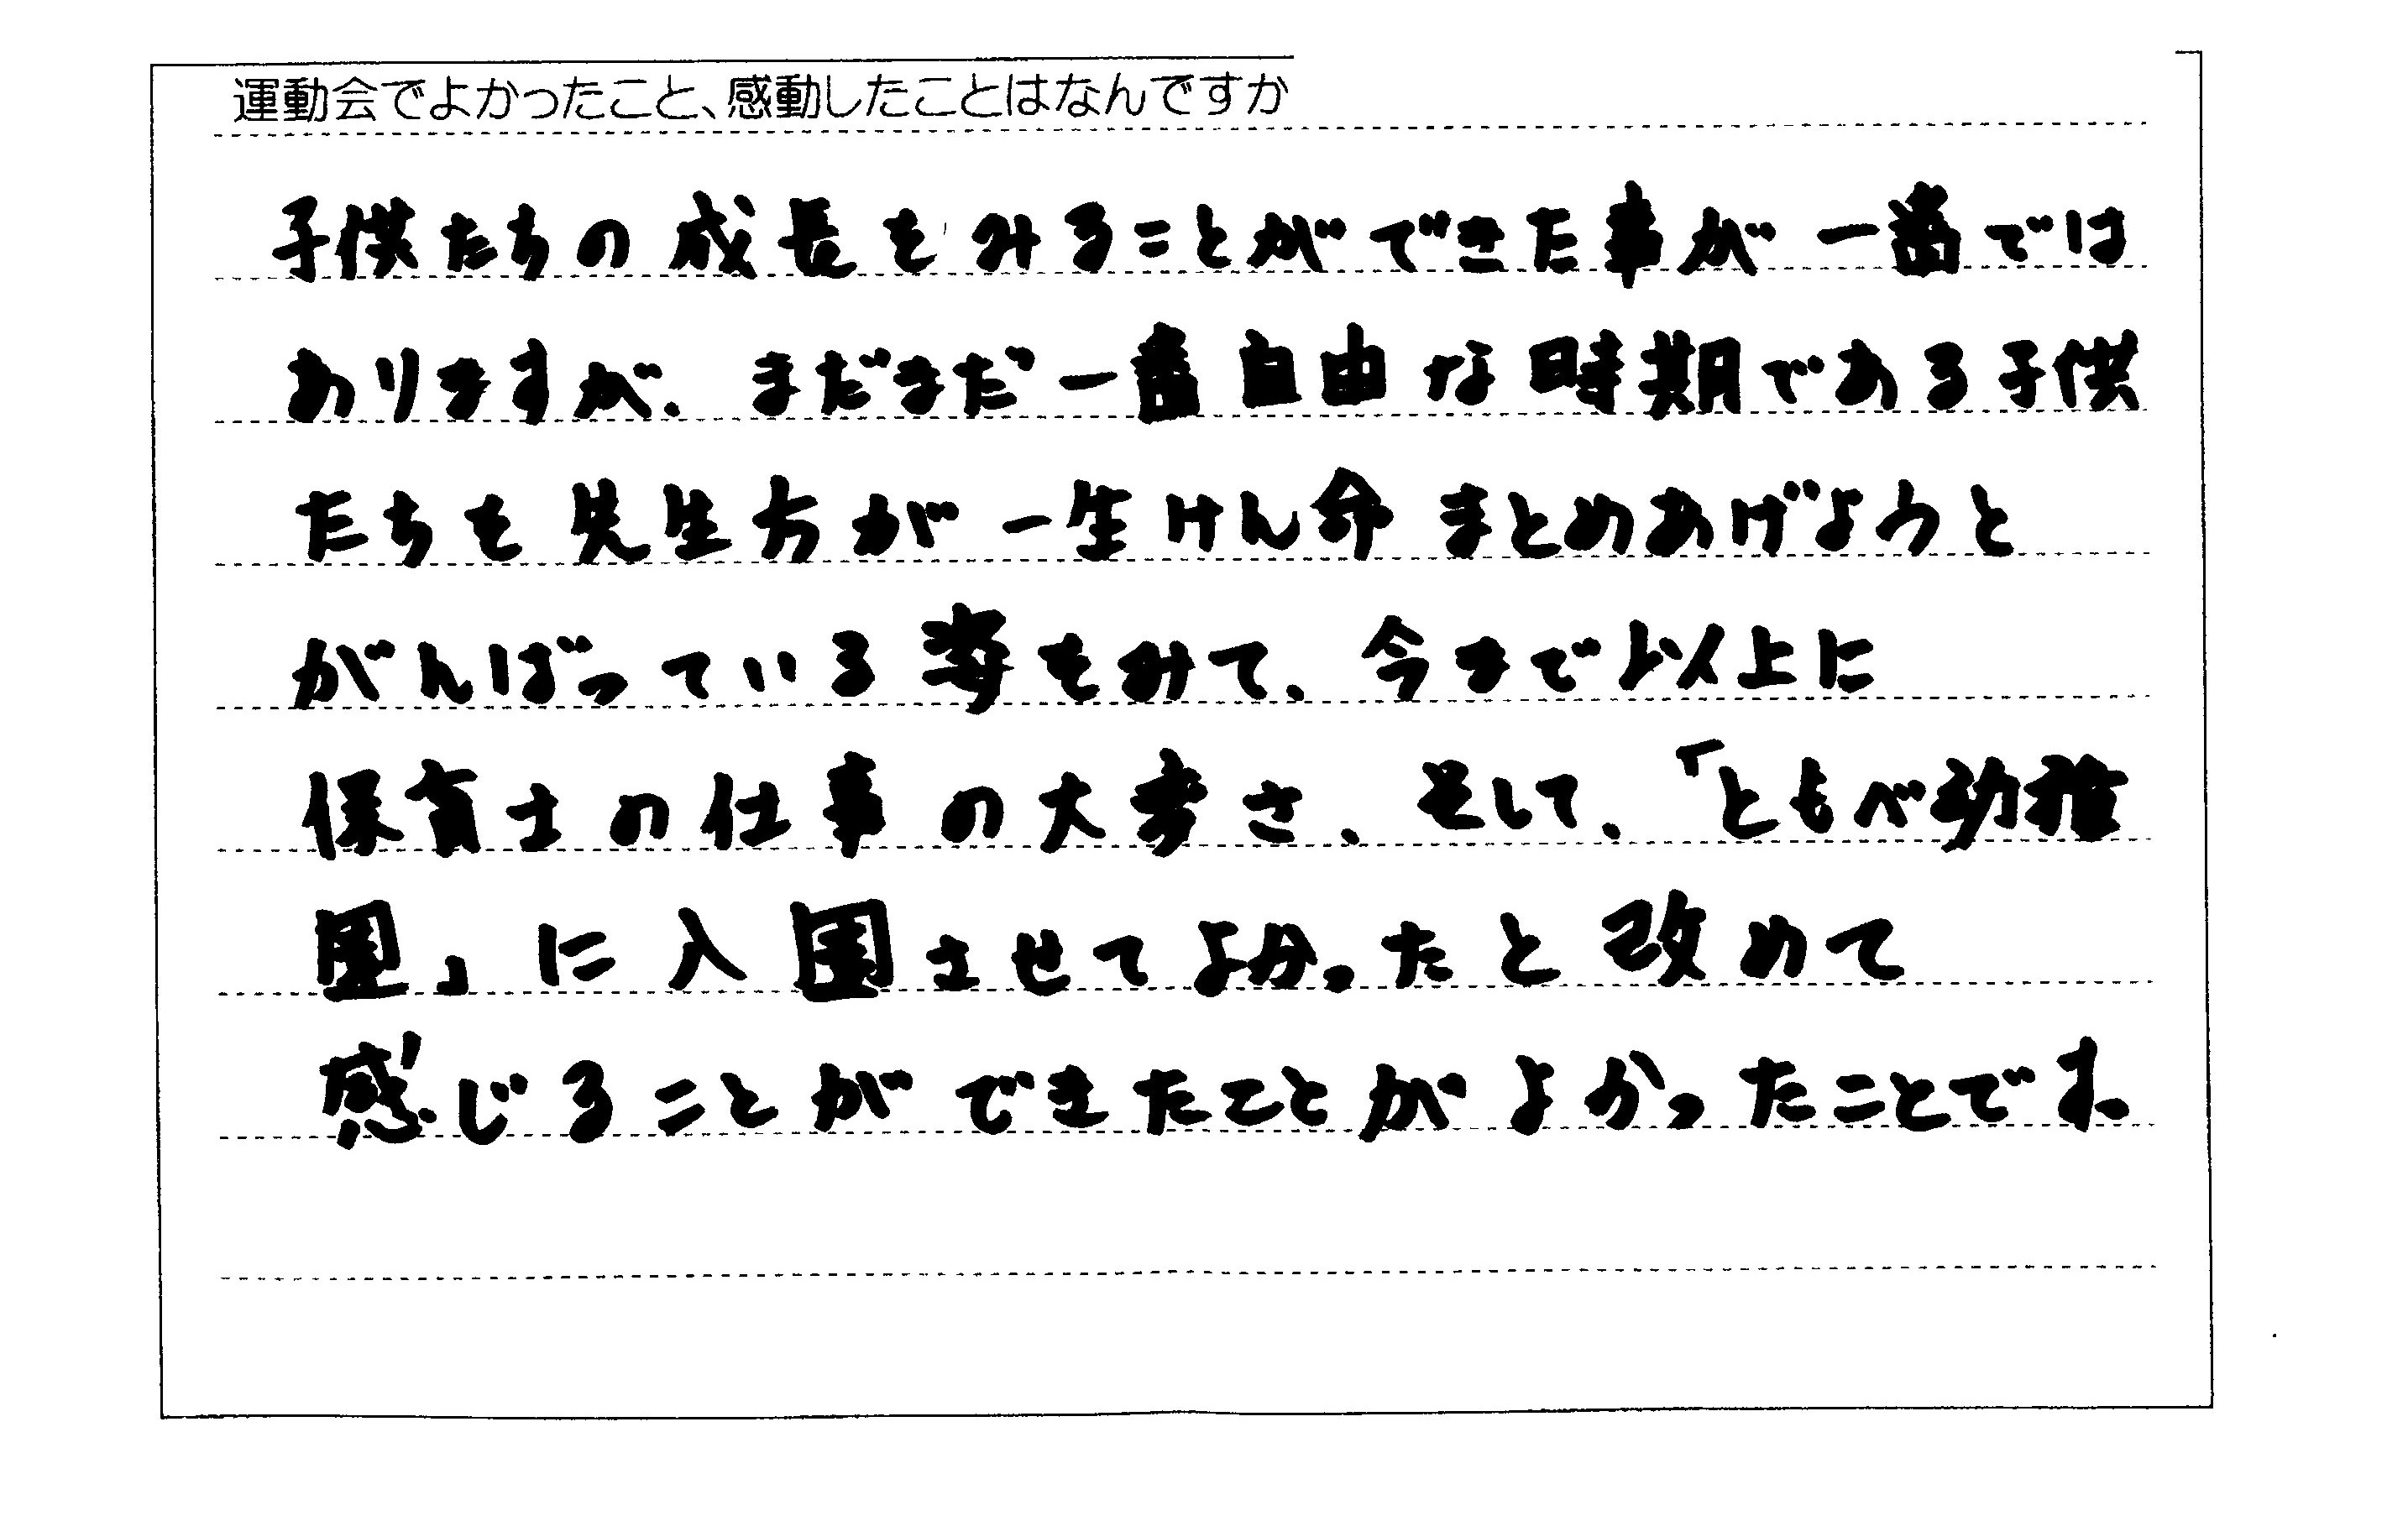 運動会でよかったこと、感動したことはなんですか
子供たちの成長をみることができた事が一番では
ありますが、まだまだ一番自由な時期である子供
たちを先生方が一生けん命まとめあげようと
がんばっている姿をみて、今まで以上に
保育士の仕事の大変さ、そして、「ともべ幼稚
園」に入園させてよかったと改めて
感じることができたことがよかったことです。